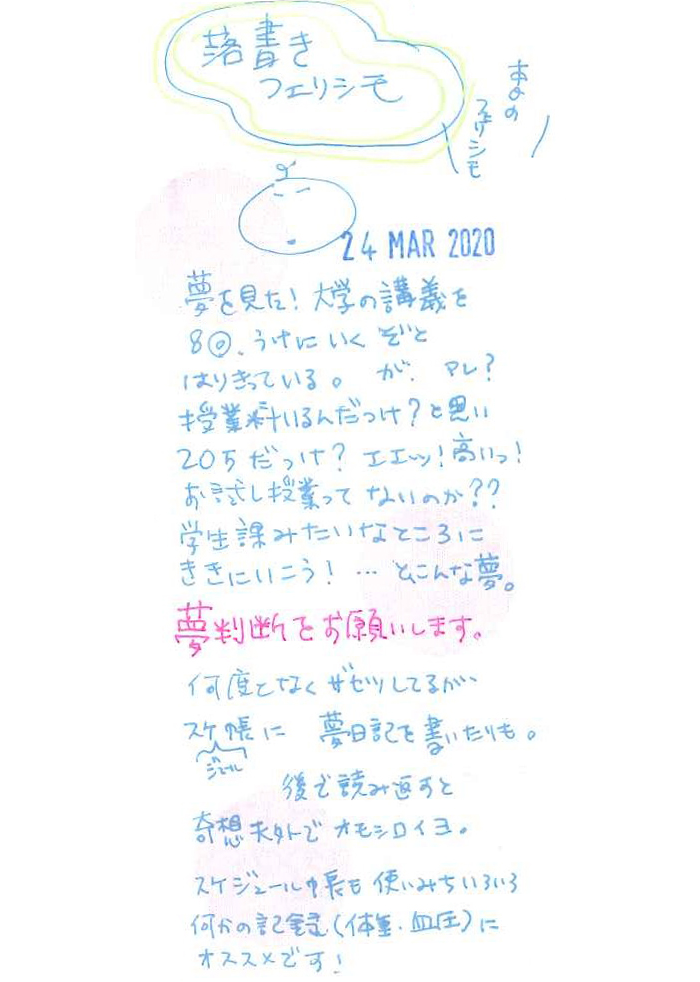 落書き
フェリシモ
本日の
フェリシモ
24 MAR 2020
夢を見た！大学の講義を
8回、うけにいくぞと
はりきっている。が、アレ？
授業料いるんだっけ？と思い
20万だっけ？エエッ！高いっ！
お試し授業ってないのか？？
学生課みたいなところに
ききにいこう！…とこんな夢。
夢判断をお願いします。
何度となくザセツしてるが
スケ帳に 夢日記を書いたりも。
ジュール
後で読み返すと
奇想天外でオモシロイヨ。
スケジュール帳も使いみちいろいろ
何かの記録（体重・血圧）に
オススメです！